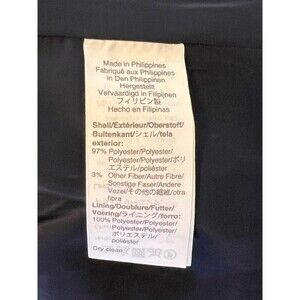 Made in Philippines
Fabriqué aux Philippines
In Den Philippinen
Hergestellt
Vervaardigd in Filipijnen
フィリピン製
Hecho en Filipinas
Shell/Extérieur/Oberstoff/
Buitenkant/シェル/tela
exterior:
97% Polyester/Polyester/
Polyester/Polyester/ポリ
エステル/poliéster
3% Other Fiber/Autre Fibre/
Sonstige Faser/Andere
Vezel/その他の繊維/otra
fibra
Lining/Doublure/Futter/
Voering/ライニング/forro:
100% Polyester/Polyester/
Polyester/Polyester/
ポリエステル/
poliéster
Dry clean